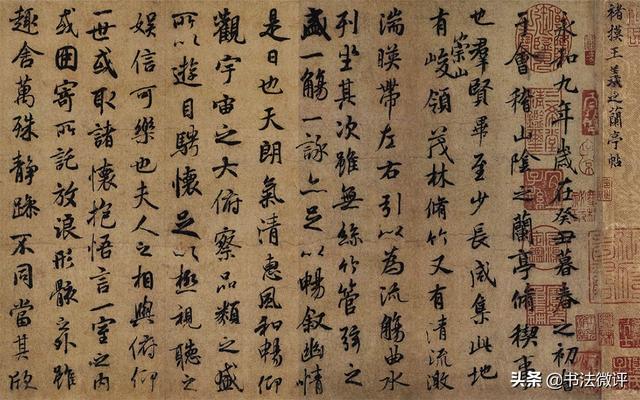 褚摸王羲之蘭亭帖
永和九年歲在癸丑暮春之初會
于會稽山陰之蘭亭脩禊事
也羣賢畢至少長咸集此地
有崇山峻領茂林脩竹又有清流激
湍暎帶左右引以為流觴曲水
列坐其次雖無絲竹管弦之
盛一觴一詠亦足以暢叙幽情
是日也天朗氣清惠風和暢仰
觀宇宙之大俯察品類之盛
所以遊目騁懷足以極視聽之
娛信可樂也夫人之相與俯仰
一世或取諸懷抱悟言一室之內
或因寄所託放浪形骸之外雖
趣舍萬殊静躁不同當其欣
头条 @书法微评